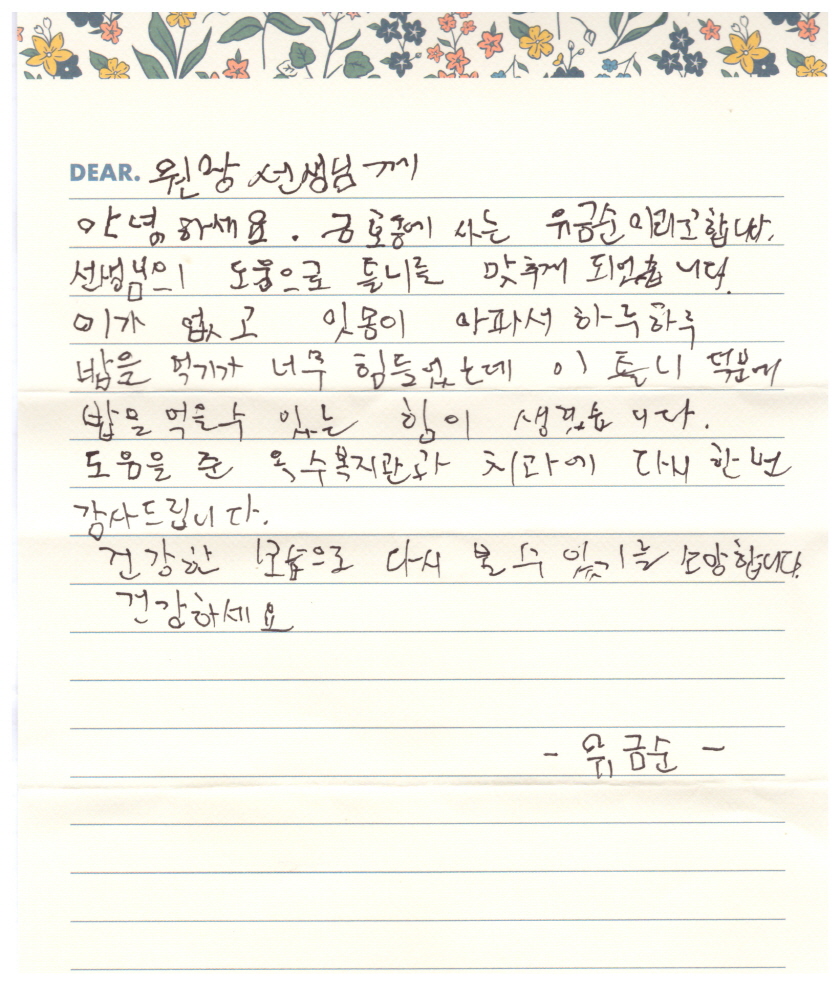 DEAR. 원장 선생님께
안녕하세요. 금호동에 사는 유금순이라고합니다.
선생님의 도움으로 틀니를 맞추게 되었습니다.
이가 없고 잇몸이 아파서 하루하루
밥을 먹기가 너무 힘들었는데 이 틀니 덕분에
밥을 먹을수 있는 힘이 생겼습니다.
도움을 준 옥수복지관과 치과에 다시 한번
감사드립니다.
건강한 모습으로 다시 볼 수 있기를 소망합니다.
건강하세요
- 유금순 -